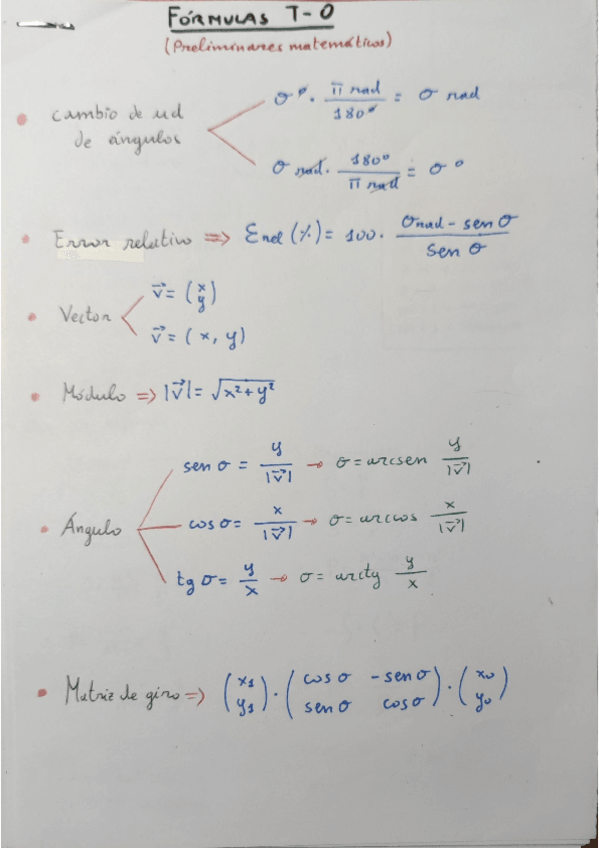 FÓRMULAS T-0
(Preliminares matemáticos)
• cambio de ud de ángulos
σ° · π rad / 180° = σ rad
σ rad · 180° / π rad = σ°
• Error relativo => Erel (%) = 100 · (σrad - sen σ) / sen σ
• Vector
v⃗ = (x y)
v⃗ = (x, y)
• Módulo => |v⃗| = √x² + y²
• Ángulo
sen σ = y / |v⃗| → σ = arcsen y / |v⃗|
cos σ = x / |v⃗| → σ = arccos x / |v⃗|
tg σ = y / x → σ = arctg y / x
• Matriz de giro => (x1 y1) · (cos σ -sen σ sen σ cos σ) · (x0 y0)